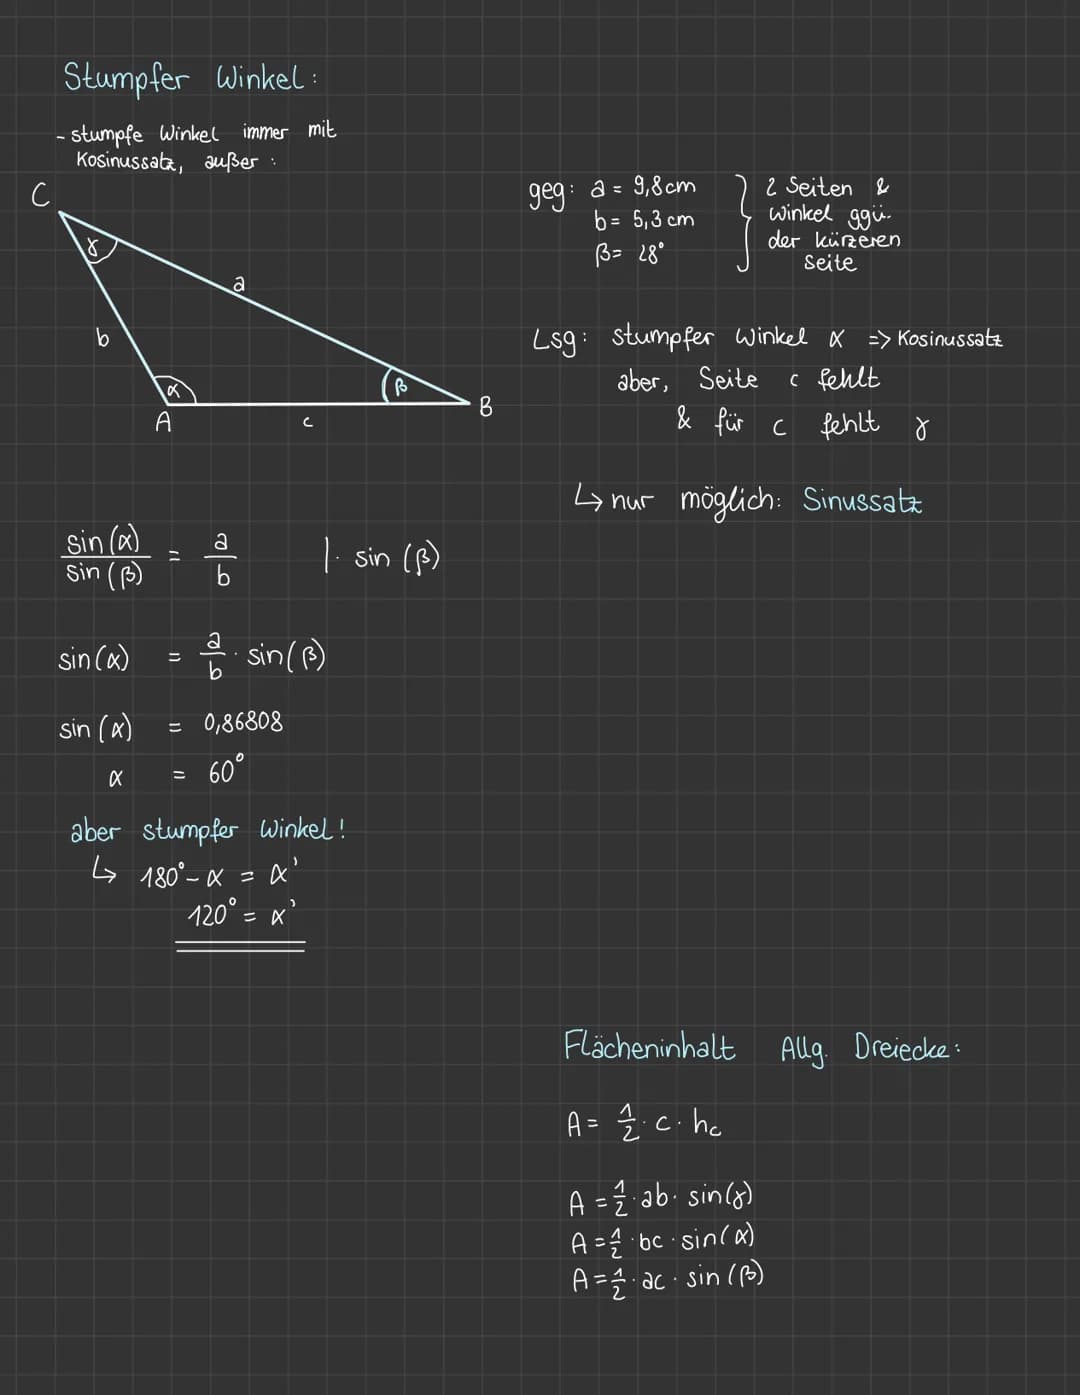 Stumpfer Winkel:
- stumpfe Winkel immer mit
Kosinussatz, außer :
C
γ
a
b
α
β
A
c
B
geg: a = 9,8cm
b = 5,3 cm
β = 28°
2 Seiten &
Winkel ggü.
der kürzeren
Seite
Lsg: stumpfer Winkel α => Kosinussatz
aber, Seite c fehlt
& für c fehlt γ
↳ nur möglich: Sinussatz
sin(α)/sin(β) = a/b |· sin (β)
sin(α) = a/b · sin(β)
sin (α) = 0,86808
α = 60°
aber stumpfer Winkel!
↳ 180° - α = α'
120° = α'
Flächeninhalt Allg. Dreiecke:
A = 1/2 · c · h꜀
A = 1/2 · ab · sin(γ)
A = 1/2 · bc · sin(α)
A = 1/2 · ac · sin (β)